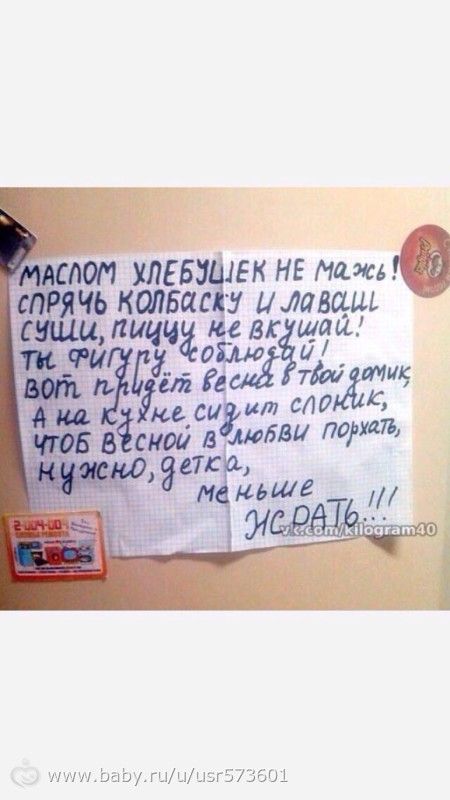 МАСЛОМ ХЛЕБУШЕК НЕ МАЖЬ!
СПРЯЧЬ КОЛБАСКУ И ЛАВАШ
СУШИ, ПИЦЦУ НЕ ВКУШАЙ!
ТЫ ФИГУРУ СОБЛЮДАЙ!
ВОТ ПРИДЁТ ВЕСНА В ТВОЙ ДОМИК,
А НА КУХНЕ СИДИТ СЛОНИК,
ЧТОБ ВЕСНОЙ В ЛЮБВИ ПОРХАТЬ,
НУЖНО, ДЕТКА,
МЕНЬШЕ
ЖРАТЬ!!!
vk.com/kilogram40
2-004-004
www.baby.ru/u/usr573601